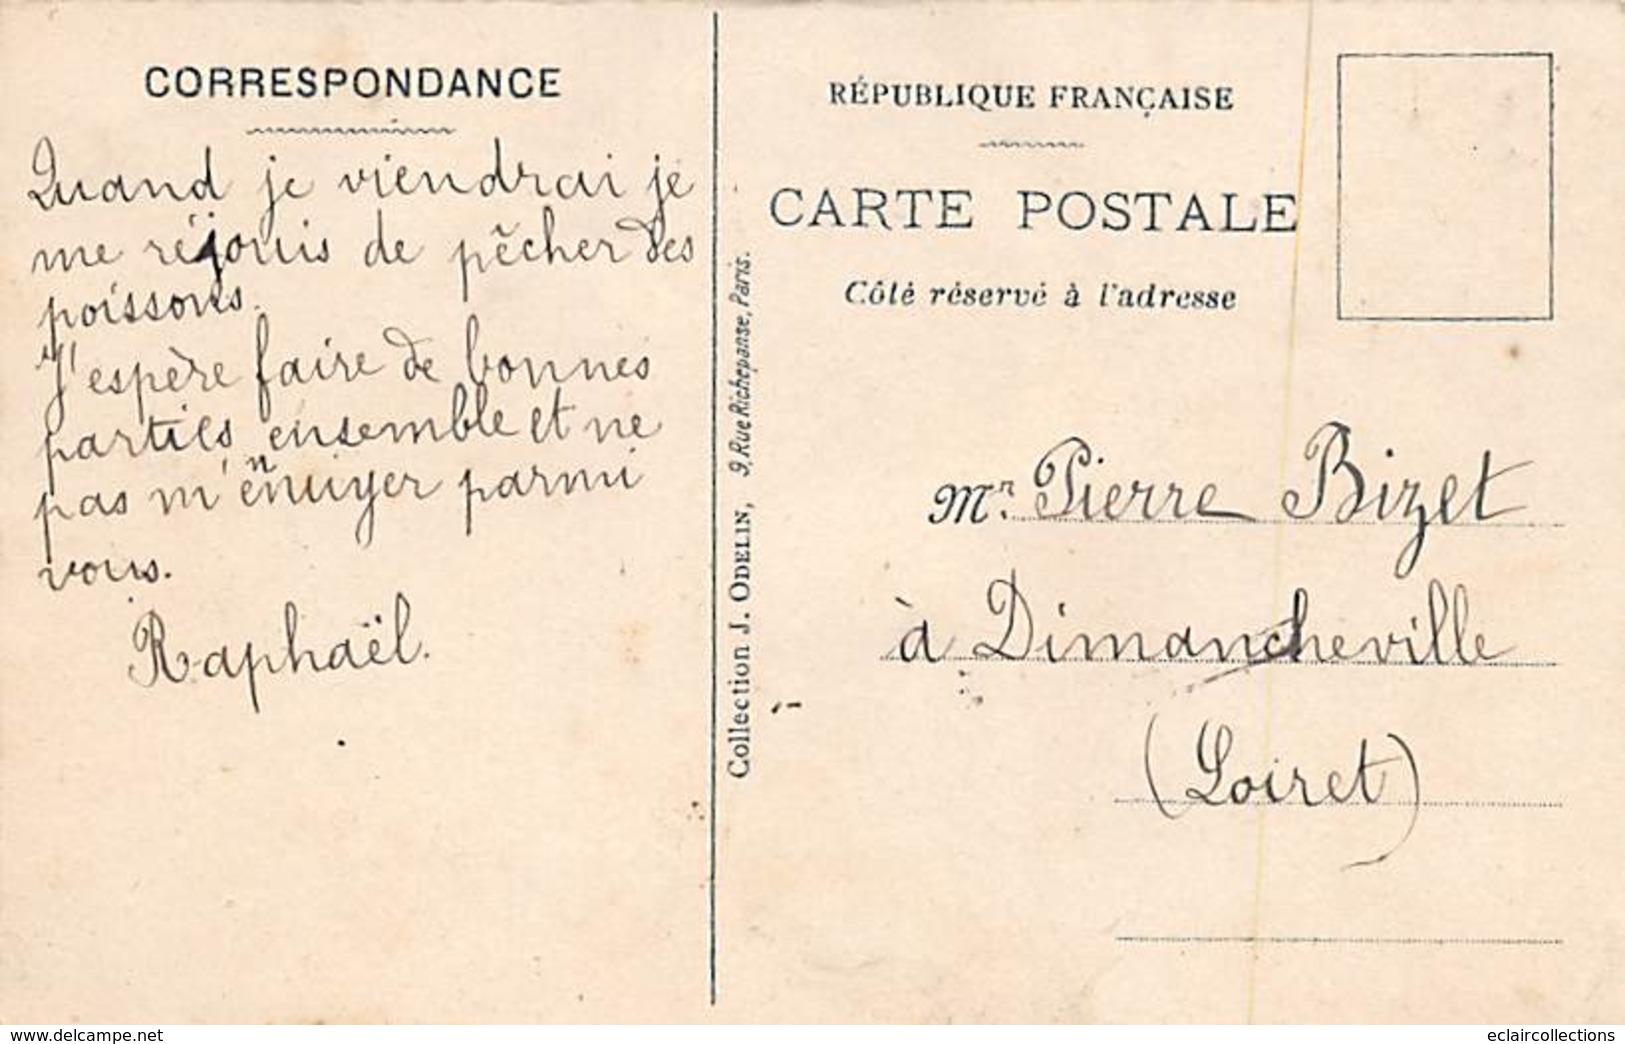 CORRESPONDANCE
Quand je viendrai je
me réjouis de pêcher des
poissons.
J'espère faire de bonnes
parties ensemble et ne
pas m'ennuyer parmi
vous.
Raphaël.
Collection J. ODELIN, 9, Rue Richepanse, Paris.
RÉPUBLIQUE FRANÇAISE
CARTE POSTALE
Côté réservé à l'adresse
Mr. Pierre Bizet
à Dimancheville
(Loiret)
www.delcampe.net
eclaircollections